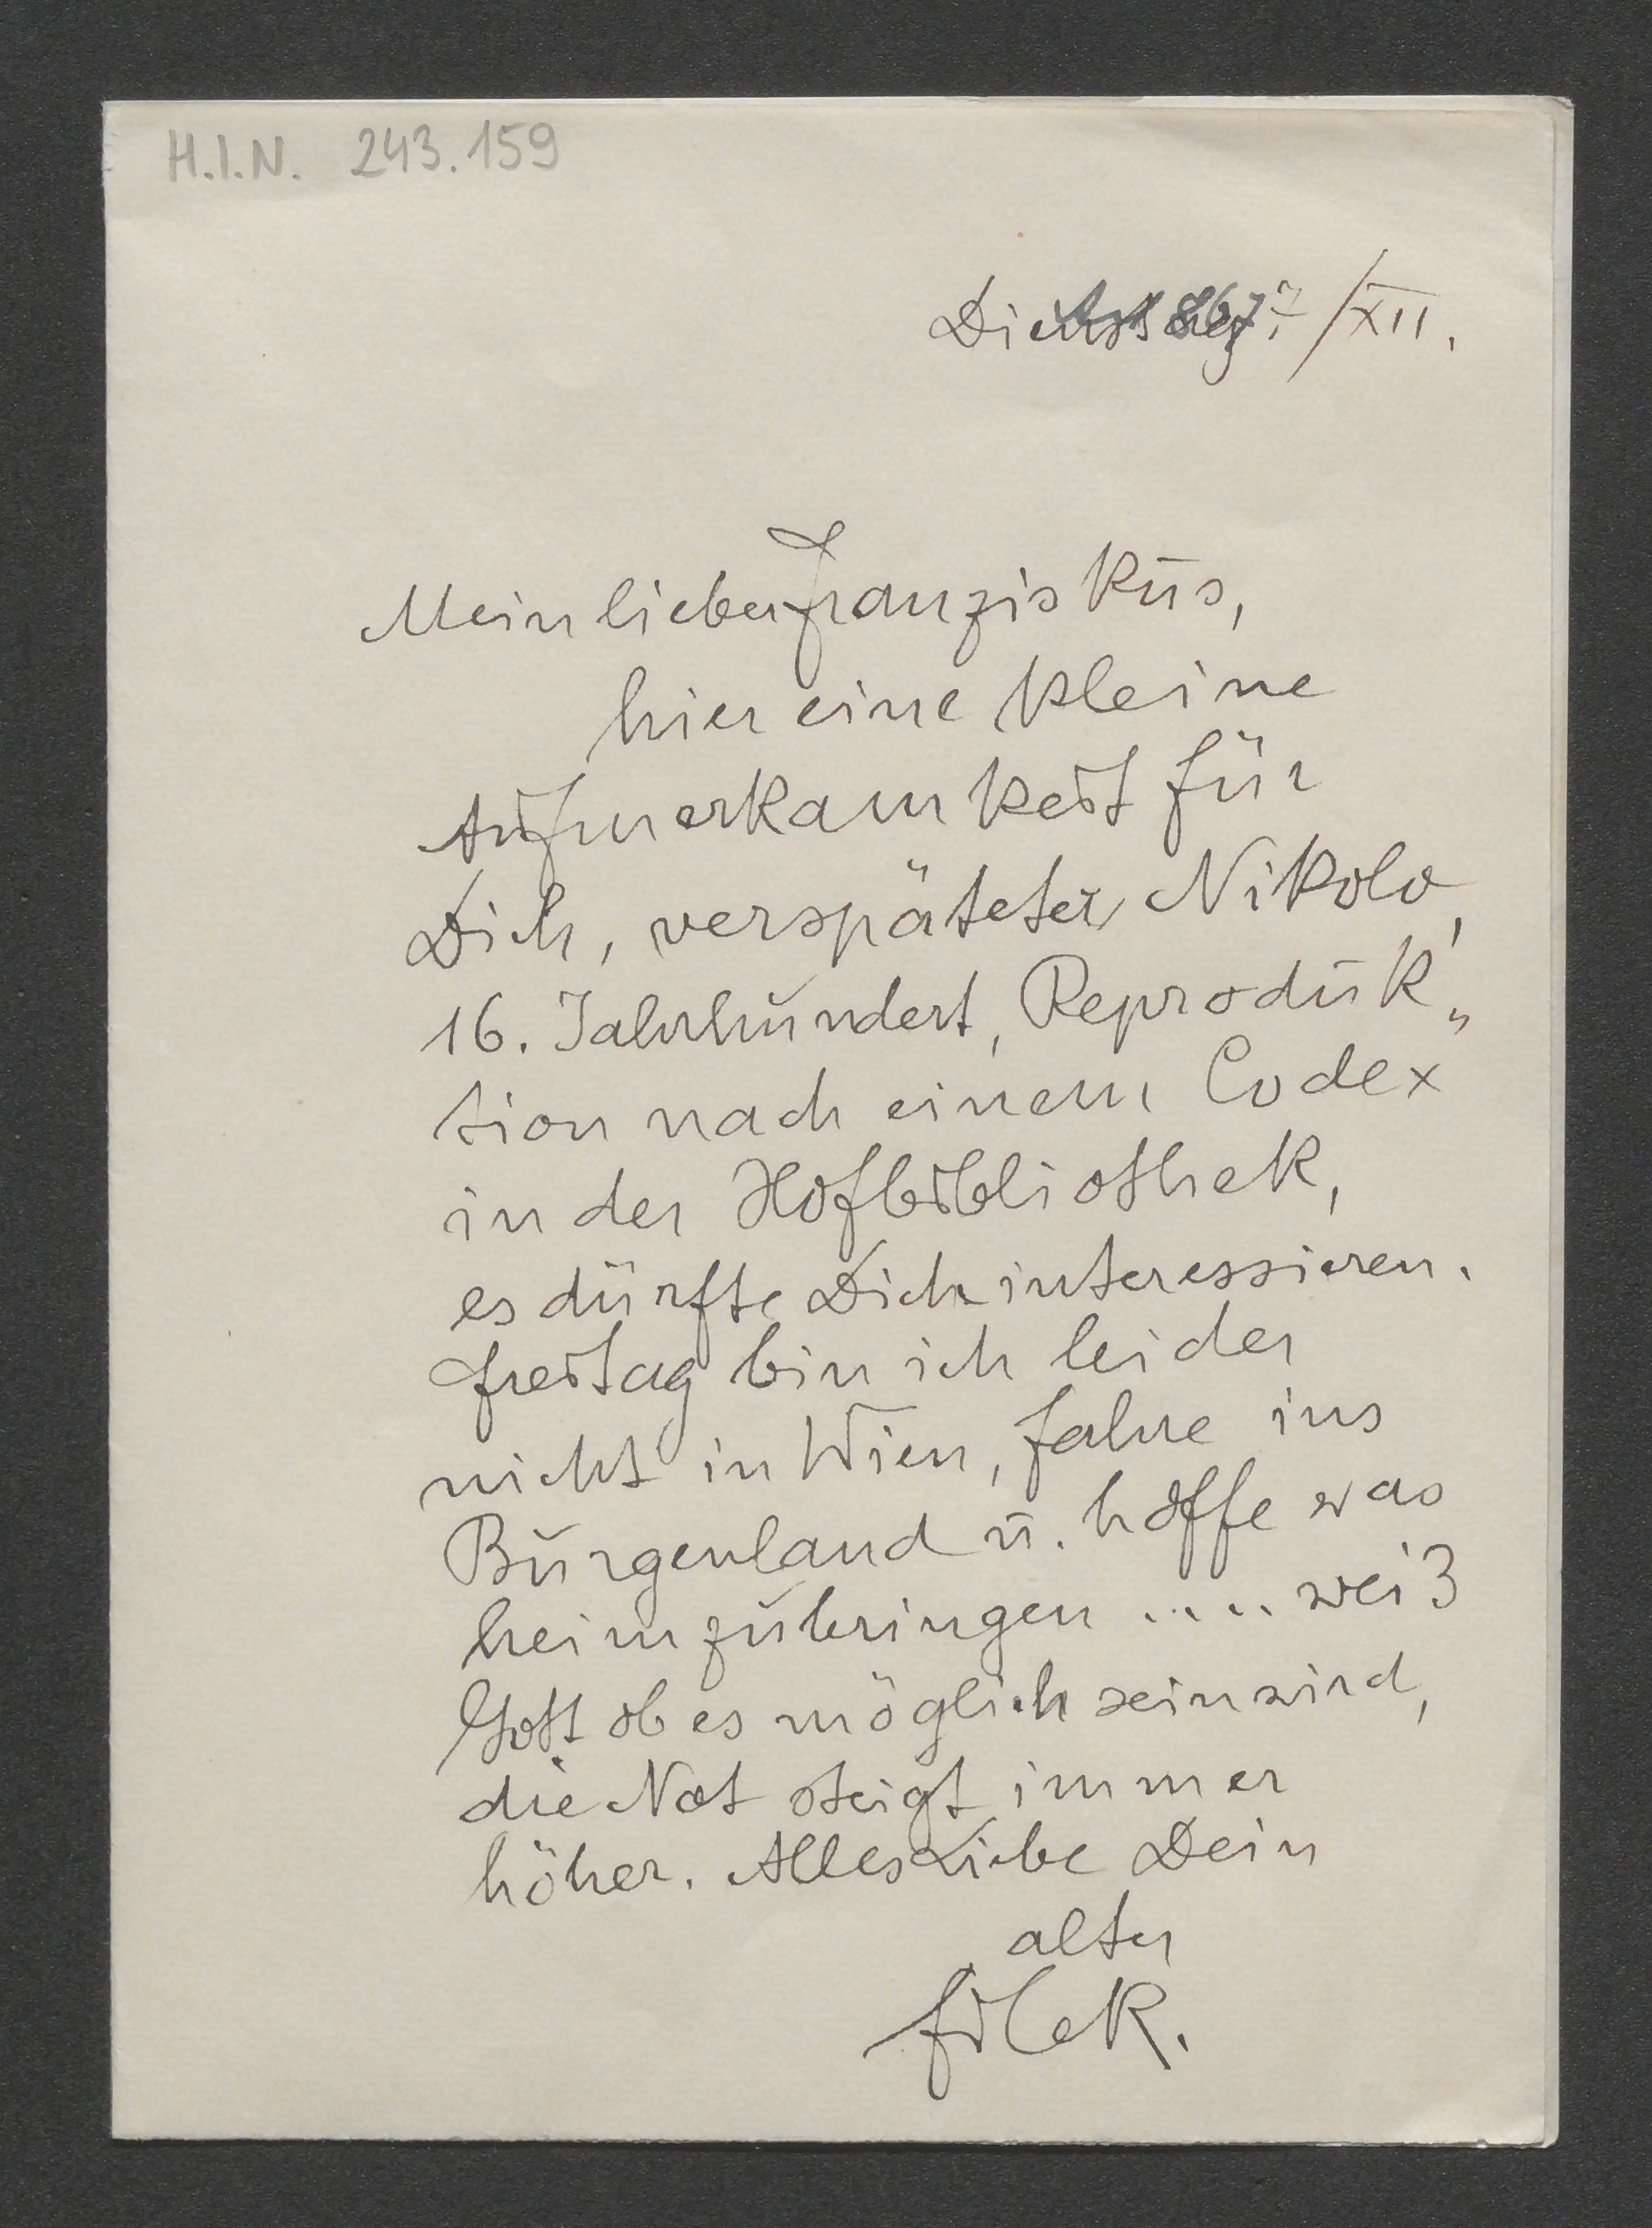 H.I.N. 243.159
Dienstag 7/XII.
Mein lieber Franziskus,
hier eine kleine
Aufmerkamkeit für
Dich, verspäteter Nikolo,
16. Jahrhundert, Reproduk„
tion nach einem Codex
in der Hofbibliothek,
es dürfte Dich interessieren.
Freitag bin ich leider
nicht in Wien, fahre ins
Burgenland u. hoffe was
heimzubringen .... weiß
Gott ob es möglich sein wird,
die Not steigt immer
höher. Alles Liebe Dein
alter
Filek.